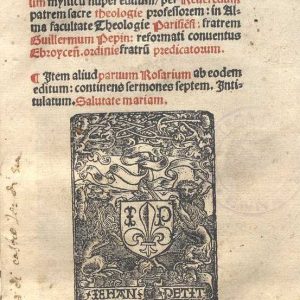 um mysticū nuper editum/per Reuerendum
patrem sacre theologie professorem: in Al⸗
ma facultate Theologie Parisień. fratrem
Guillermum Pepin: reformati conuentus
Ebroyceń. ordinis fratrū predicatorum.
¶ Item aliud paruum Rosarium ab eodem
editum: continens sermones septem. Inti⸗
tulatum. Salutate mariam.
I P
IEHAN PETIT